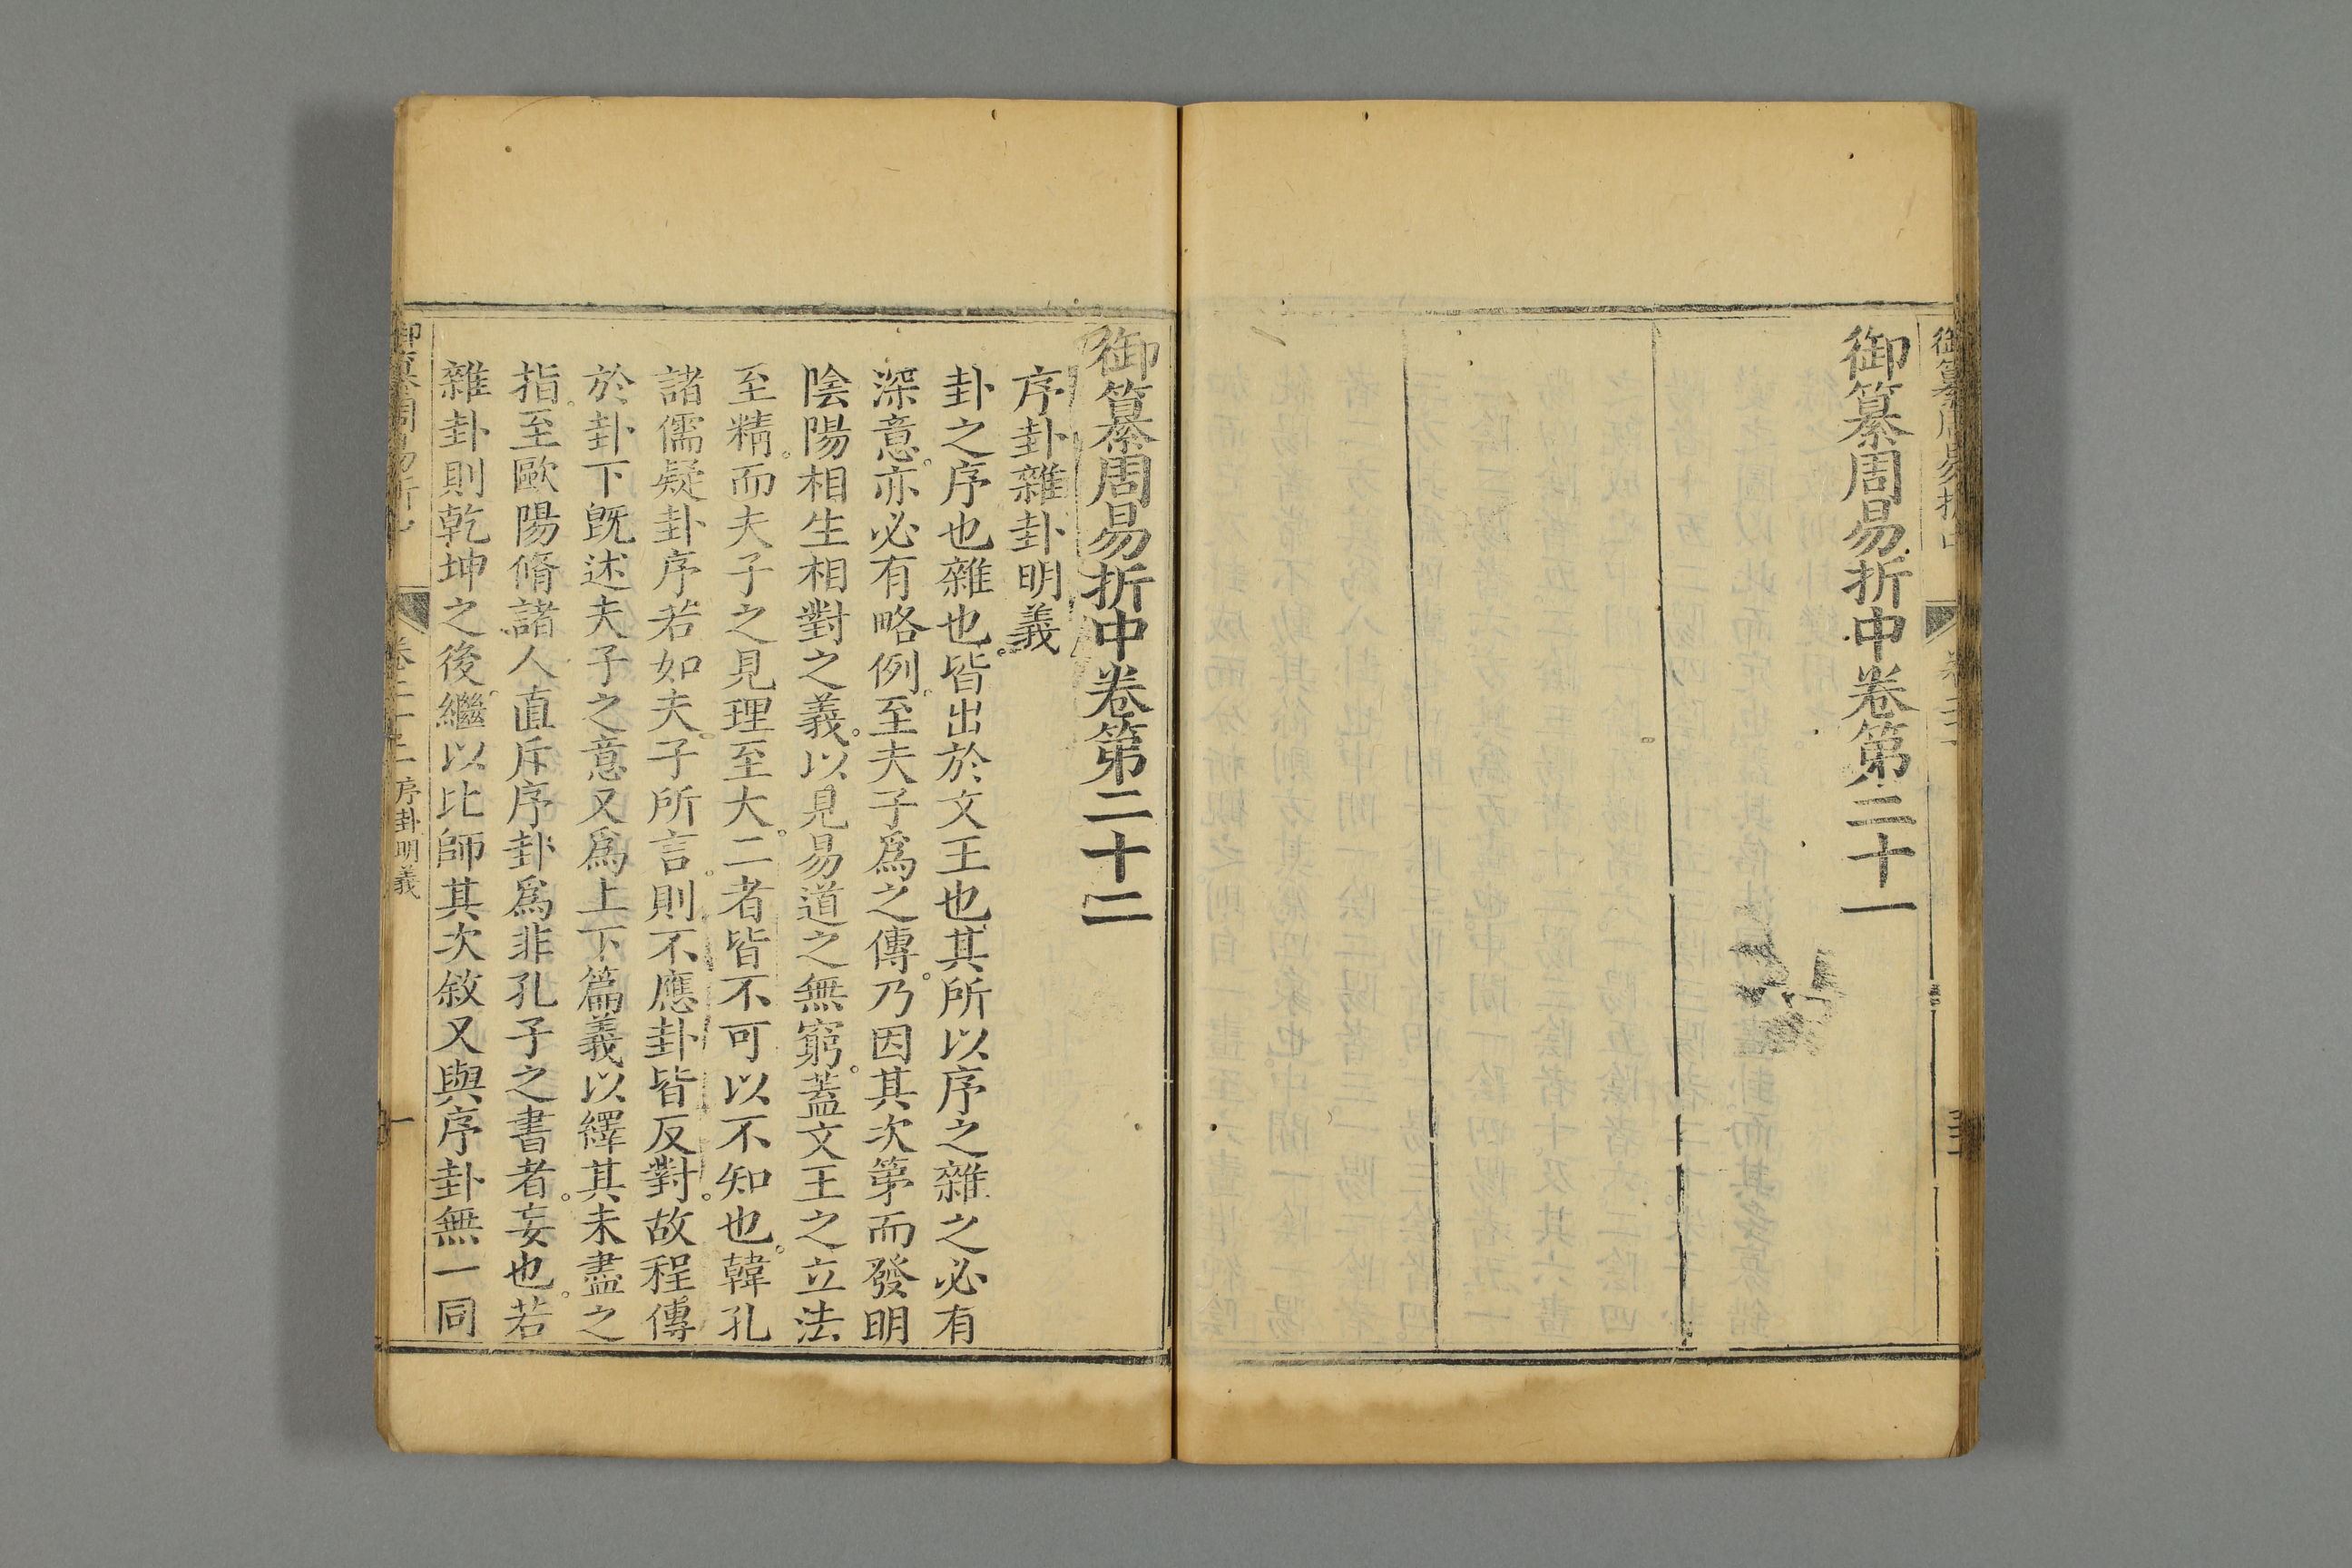 御纂周易折中卷第二十一
御纂周易折中卷第二十二
序卦雜卦明義
卦之序也雜也皆出於文王也其所以序之雜之必有
深意亦必有略例至夫子爲之傳乃因其次第而發明
陰陽相生相對之義以見易道之無窮蓋文王之立法
至精而夫子之見理至大二者皆不可以不知也韓孔
諸儒疑卦序若如夫子所言則不應卦皆反對故程傳
於卦下旣述夫子之意又爲上下篇義以繹其未盡之
指至歐陽脩諸人直斥序卦爲非孔子之書者妄也若
雜卦則乾坤之後繼以比師其次敘又與序卦無一同
御纂周易折中 卷二十二 序卦明義 一